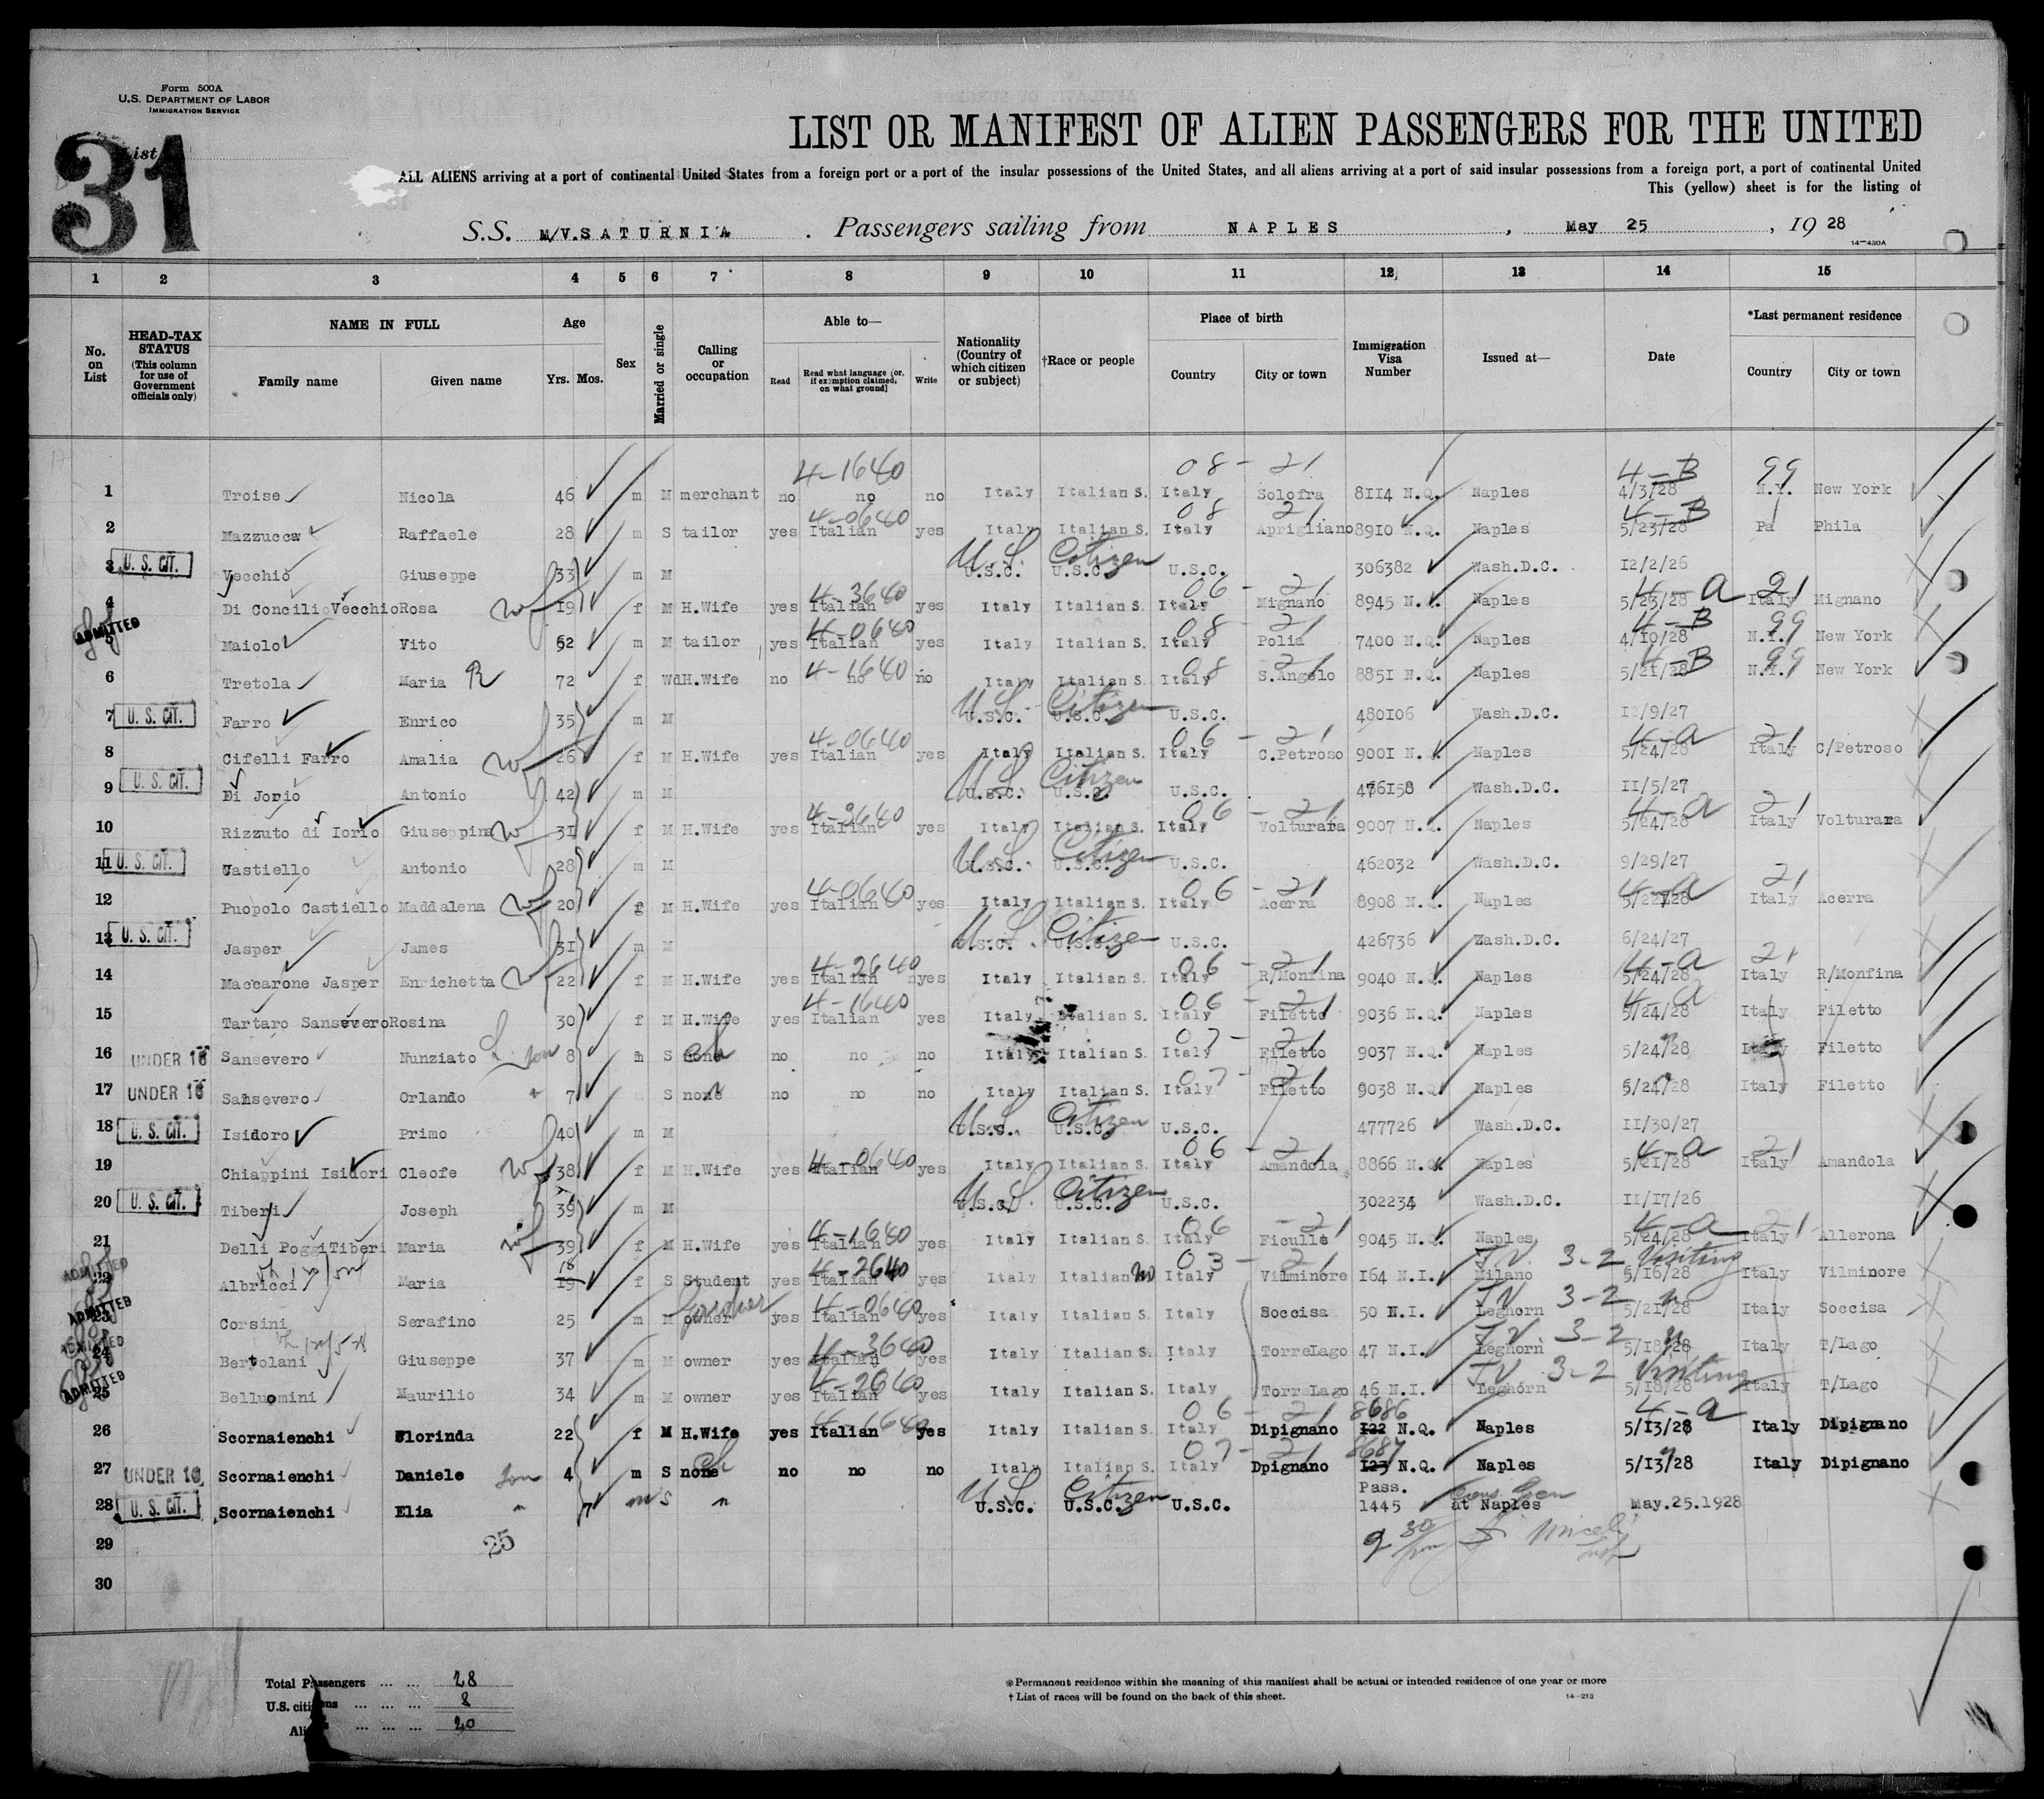 Form 500A
U.S. DEPARTMENT OF LABOR
IMMIGRATION SERVICE
List
31
LIST OR MANIFEST OF ALIEN PASSENGERS FOR THE UNITED
ALL ALIENS arriving at a port of continental United States from a foreign port or a port of the insular possessions of the United States, and all aliens arriving at a port of said insular possessions from a foreign port, a port of continental United
This (yellow) sheet is for the listing of
S.S. M/V.SATURNIA . Passengers sailing from NAPLES , May 25 , 19 28
14—430A
1 2 3 4 5 6 7 8 9 10 11 12 13 14 15
No. on List
HEAD-TAX STATUS (This column for use of Government officials only)
NAME IN FULL
Family name Given name
Age
Yrs. Mos.
Sex
Married or single
Calling or occupation
Able to—
Read Read what language [or, if exemption claimed, on what ground] Write
Nationality (Country of which citizen or subject)
†Race or people
Place of birth
Country City or town
Immigration Visa Number
Issued at—
Date
*Last permanent residence
Country City or town
4-1640 08 - 21 4-B 99
1 Troise Nicola 46 m M merchant no no no Italy Italian S. Italy Solofra 8114 N.Q. Naples 4/3/28 N.Y. New York
4-0640 08 21 4-B
2 Mazzucca Raffaele 28 m S tailor yes Italian yes Italy Italian S. Italy Aprigliano 8910 N.Q. Naples 5/23/28 Pa Phila
U.S. Citizen
3 U. S. CIT. Vecchio Giuseppe 33 m M U.S.C. U.S.C. U.S.C. 306382 Wash.D.C. 12/2/26
4-3640 06 - 21 4-a 21
4 Di Concilio Vecchio Rosa wf 19 f M H.Wife yes Italian yes Italy Italian S. Italy Mignano 8945 N.Q. Naples 5/23/28 Italy Mignano
4-0640 08 - 21 4-B 99
5 ADMITTED Maiolo Vito 52 m M tailor yes Italian yes Italy Italian S. Italy Polia 7400 N.Q. Naples 4/10/28 N.Y. New York
4-1640 08 - 21 4-B 99
6 Tretola Maria R 72 f Wd H.Wife no no no Italy Italian S. Italy S.Angelo 8851 N.Q. Naples 5/21/28 N.Y. New York
U.S. Citizen
7 U. S. CIT. Farro Enrico 35 m M U.S.C. U.S.C. U.S.C. 480106 Wash.D.C. 12/9/27
4-0640 06 - 21 4-a 21
8 Cifelli Farro Amalia wf 26 f M H.Wife yes Italian yes Italy Italian S. Italy C.Petroso 9001 N.Q. Naples 5/24/28 Italy C/Petroso
U.S. Citizen
9 U. S. CIT. Di Jorio Antonio 42 m M U.S.C. U.S.C. U.S.C. 476158 Wash.D.C. 11/5/27
06 - 21 4-a 21
10 Rizzuto di Iorio Giuseppina wf 31 f M H.Wife yes Italian yes Italy Italian S. Italy Volturara 9007 N.Q. Naples 5/24/28 Italy Volturara
U.S. Citizen
11 U. S. CIT. Castiello Antonio 28 m M U.S.C. U.S.C. U.S.C. 462032 Wash.D.C. 9/29/27
4-0640 06 - 21 4-a 21
12 Puopolo Castiello Maddalena wf 20 f M H.Wife yes Italian yes Italy Italian S. Italy Acerra 8908 N.Q. Naples 5/22/28 Italy Acerra
U.S. Citizen
13 U. S. CIT. Jasper James 31 m M U.S.C. U.S.C. U.S.C. 426736 Wash.D.C. 6/24/27
4-2640 06 - 21 4-a 21
14 Maccarone Jasper Enrichetta wf 22 f M H.Wife yes Italian yes Italy Italian S. Italy R/Monfina 9040 N.Q. Naples 5/24/28 Italy R/Monfina
4-1640 06 - 21 4-a
15 Tartaro Sansevero Rosina 30 f M H.Wife yes Italian yes Italy Italian S. Italy Filetto 9036 N.Q. Naples 5/24/28 Italy Filetto
07 - 21
16 UNDER 16 Sansevero Nunziato son 8 m S none ch no no no Italy Italian S. Italy Filetto 9037 N.Q. Naples 5/24/28 Italy Filetto
07 - 21
17 UNDER 16 Sansevero Orlando " 7 S none no no no Italy Italian S. Italy Filetto 9038 N.Q. Naples 5/24/28 Italy Filetto
U.S. Citizen
18 U. S. CIT. Isidoro Primo 40 m M U.S.C. U.S.C. U.S.C. 477726 Wash.D.C. 11/30/27
4-0640 06 - 21 4-a 21
19 Chiappini Isidori Cleofe wf 38 f M H.Wife yes Italian yes Italy Italian S. Italy Amandola 8866 N.Q. Naples 5/21/28 Italy Amandola
U.S. Citizen
20 U. S. CIT. Tiberi Joseph 39 m M U.S.C. U.S.C. U.S.C. 302234 Wash.D.C. 11/17/26
4-1640 06 - 21 4-a 21
21 Delli Poggi Tiberi Maria wf 39 f M H.Wife yes Italian yes Italy Italian S. Italy Ficulle 9045 N.Q. Naples 5/24/28 Italy Allerona
18 4-2640 03 - 21 T.V. 3-2 Visiting
22 ADMITTED Albricci Maria 19 f S Student yes Italian yes Italy Italian no Italy Vilminore 164 N.I. Milano 5/16/28 Italy Vilminore
4-0640 T.V. 3-2 "
23 ADMITTED Corsini Serafino 25 m M owner yes Italian yes Italy Italian S. Italy Soccisa 50 N.I. Leghorn 5/21/28 Italy Soccisa
4-3640 T.V. 3-2 "
24 ADMITTED Bertolani Giuseppe 37 m M owner yes Italian yes Italy Italian S. Italy TorreLago 47 N.I. Leghorn 5/18/28 Italy T/Lago
4-2640 T.V. 3-2 Visiting
25 ADMITTED Belluomini Maurilio 34 m M owner yes Italian yes Italy Italian S. Italy TorreLago 46 N.I. Leghorn 5/18/28 Italy T/Lago
4-1640 06 - 21 8686 4-a
26 Scornaienchi Florinda 22 f M H.Wife yes Italian yes Italy Italian S. Italy Dipignano 122 N.Q. Naples 5/13/28 Italy Dipignano
07 - 21 8687
27 UNDER 16 Scornaienchi Daniele son 4 m S none ch no no no Italy Italian S. Italy Dpignano 123 N.Q. Naples 5/13/28 Italy Dipignano
U.S. Citizen Pass. Cons. Gen
28 U. S. CIT. Scornaienchi Elia " 7 m S " U.S.C. U.S.C. U.S.C. 1445 at Naples May.25.1928
25
29
9 30 pm
30
Total Passengers ... ... 28
U.S. citizens ... ... ... 8
Aliens ... ... ... 20
*Permanent residence within the meaning of this manifest shall be actual or intended residence of one year or more
† List of races will be found on the back of this sheet.
14—213